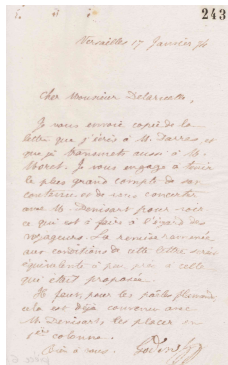 243
Versailles 17 Janvier 74
Cher Monsieur
Je vous envoie copie de la
lettre que j'écris à M. Darras et
que je transmets aussi à M.
Moret. Je vous engage à tenir
le plus grand compte de son
contenu et de vous concerter
avec M. Denisart pour voir
ce qui est à faire à l'égard des
voyageurs. La remise ramenée
aux conditions de cette lettre serait
équivalente à peu près à celle
qui était proposée.
Il faut, pour les
cela est déjà convenu avec
M. Denisart, les placer en
1ère colonne.
Bien à vous. Godin